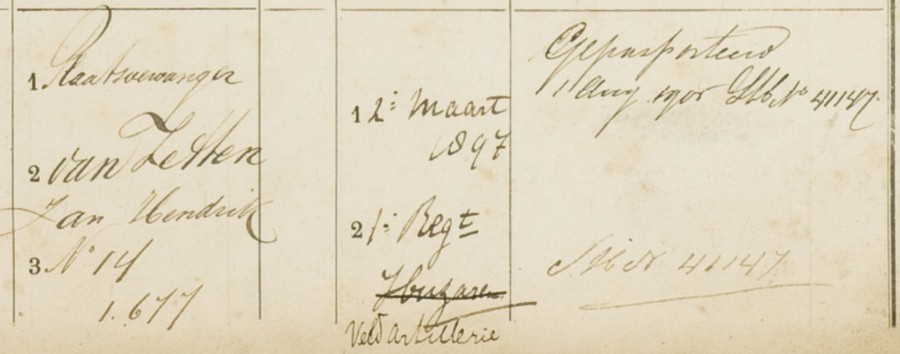 1 Plaatsvervanger
2 van Zetten
Jan Hendrik
3 No 14
1.677
1 2e Maart
1897
2 1e Regt
Huzaren
Veld artillerie
Gepasporteerd
1 Aug 1905 Stb No 41147.
Stb No 41147